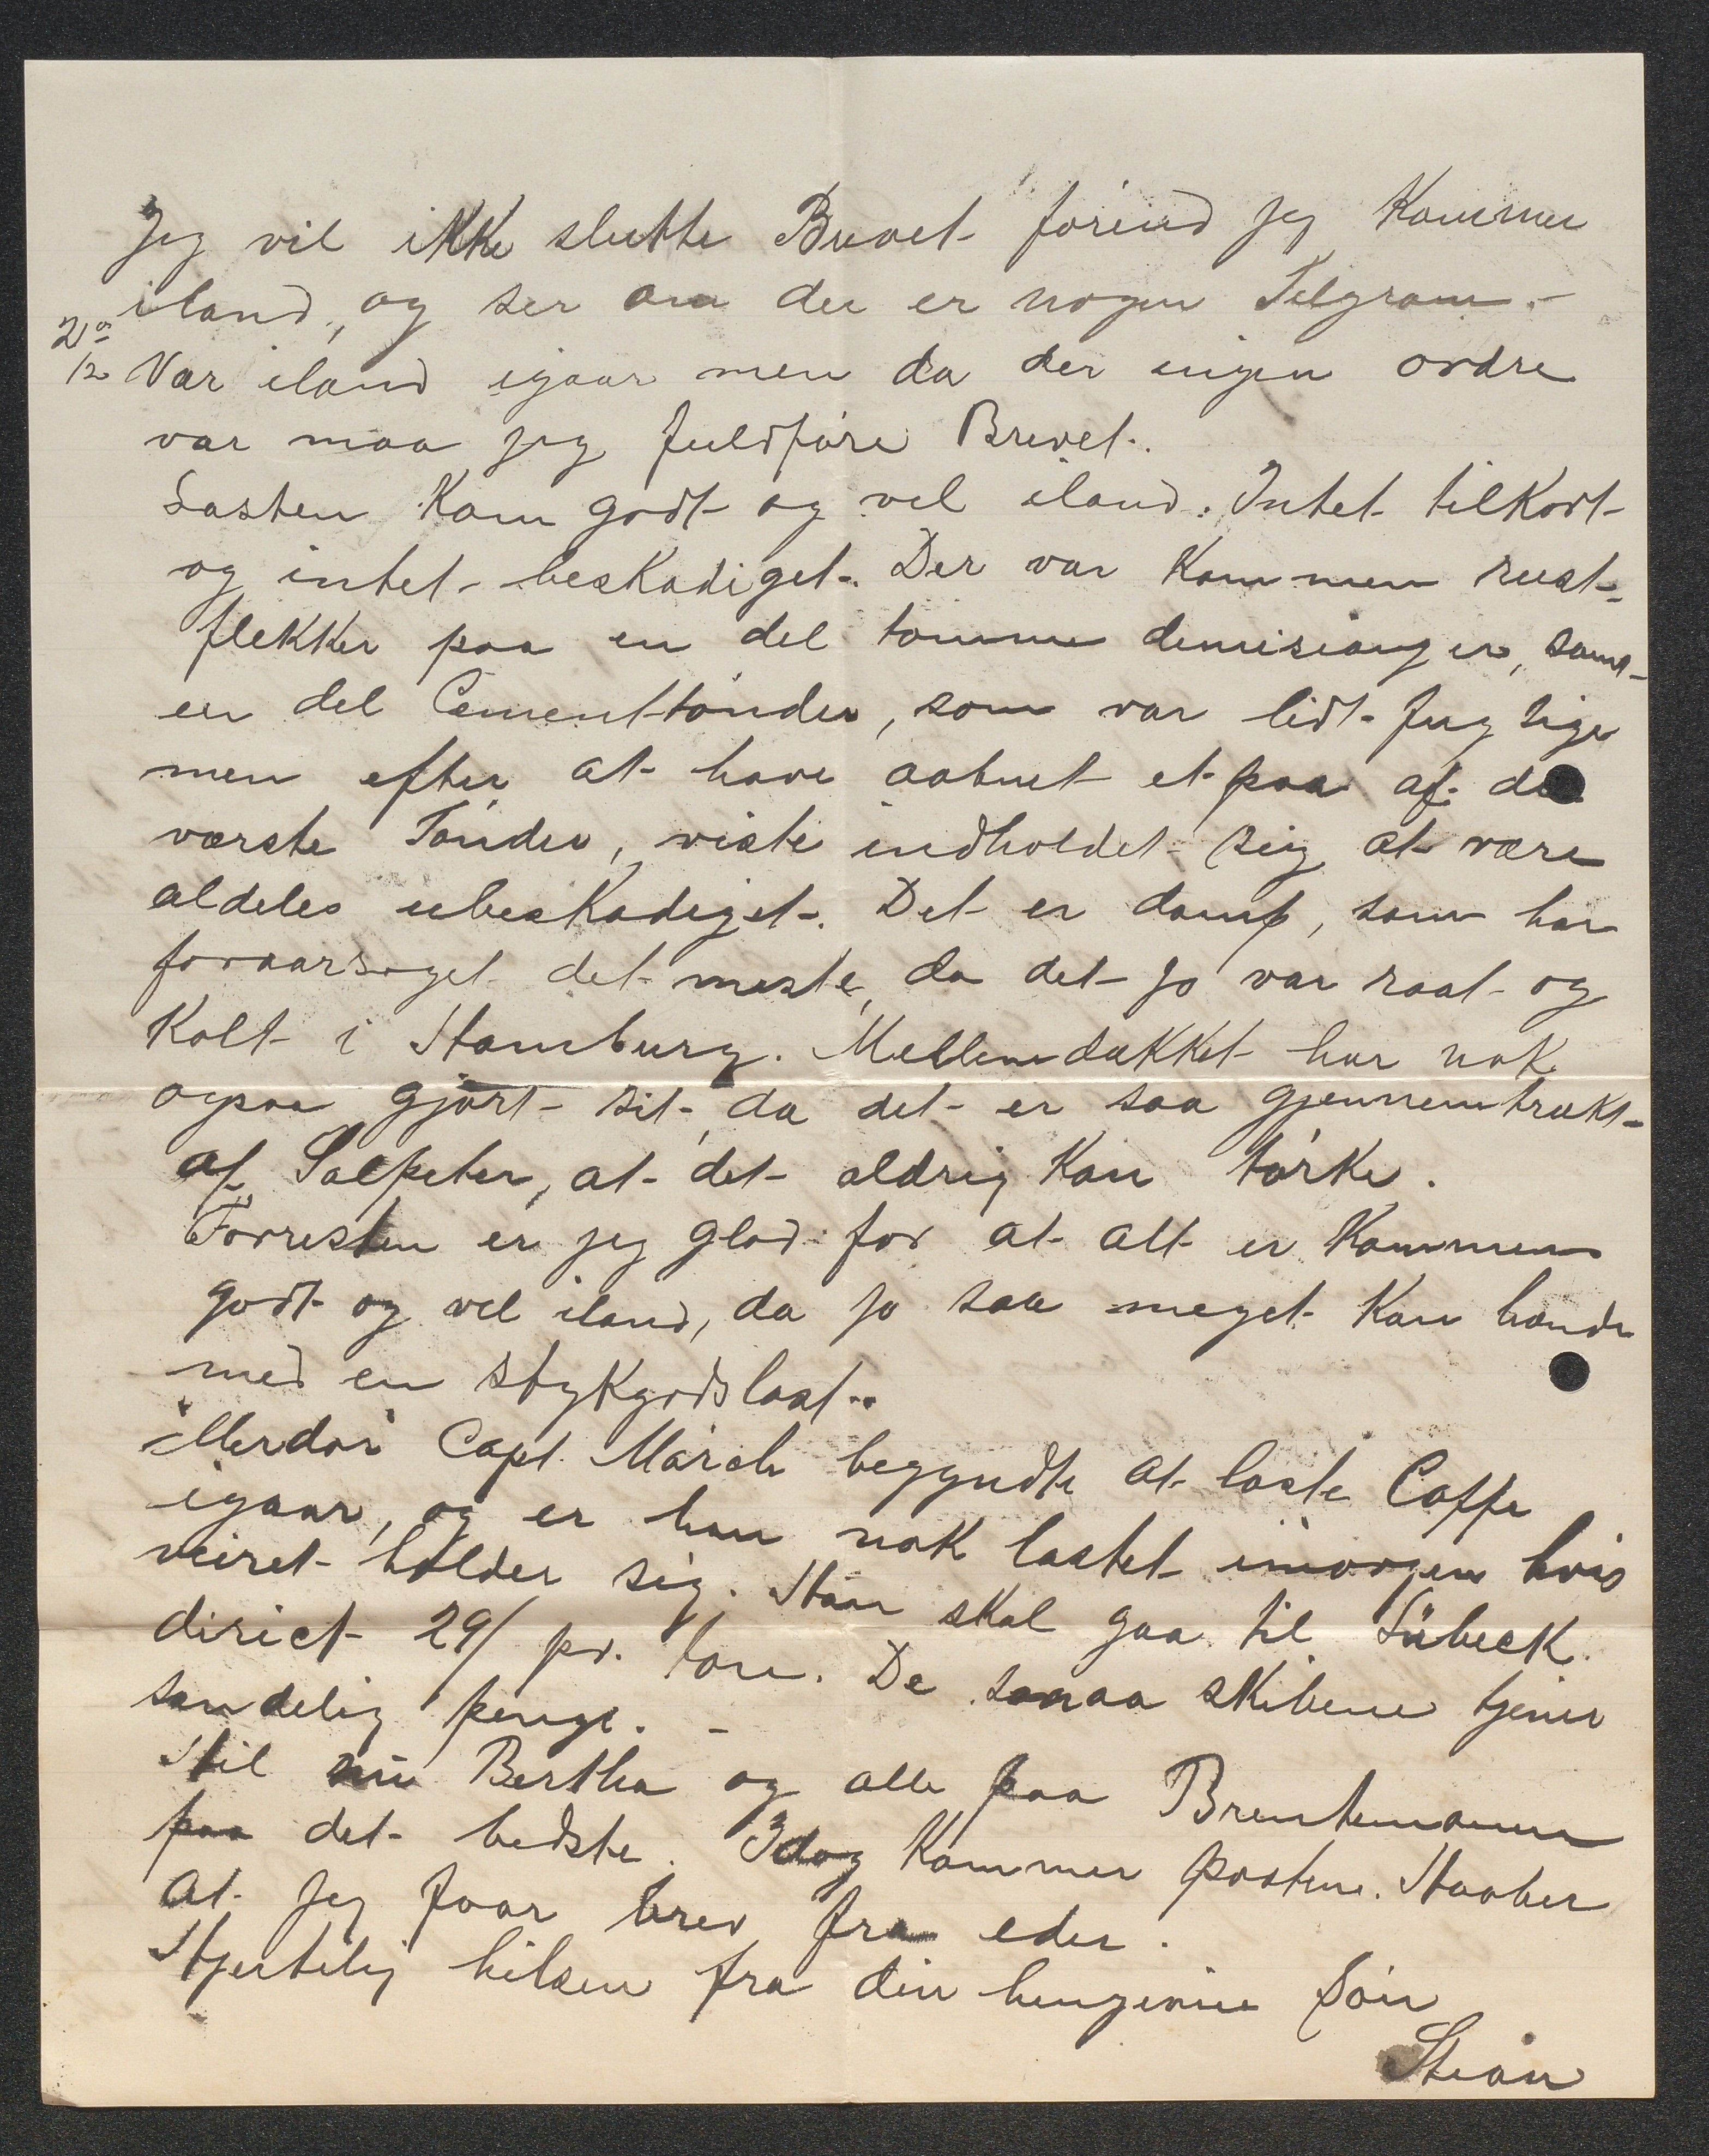 Jeg vil ikke slutte Brevet förend jeg kommer
iland, og ser om der er nogen Telgram.-
2den/12 Var iland igaar men da der ingen ordre
var maa jeg fuldföre Brevet.
Lasten kom godt og vel iland. Intet tilkort
og intet beskadiget. Der var kommen rust-
flekker paa en del tomme demisianger, samt
en del Cementtönder, som var lidt fugtige
men efter at have aabnet et par af de
værste Tönder, viste indholdet sig at være
aldeles ubeskadiget. Det er damp, som har
foraarsaget det meste, da det jo var raat og
Kolt i Hamburg. Mellemdækket har nok
ogsaa gjört sit, da det er saa gjennemtrukt
af Salpeter, at det aldrig kan törke.
Forresten er jeg glad for at alt er kommen
godt og vel iland, da jo saa meget kan hænde
med en stykgodslast.
Merdö Capt. Mörch begyndte at laste Caffe
igaar, og er han nok lastet imorgen hvis
veiret holder sig. Han skal gaa til Lübeck
direct 29/ pr. ton. De smaa skibene tjener
sandelig penge. -
Hil min Bertha og alle paa
paa det bedste. Idag kommer posten. Haaber
at jeg faar brev fra eder.
Hjertelig hilsen fra din hengivne Sön
Stian